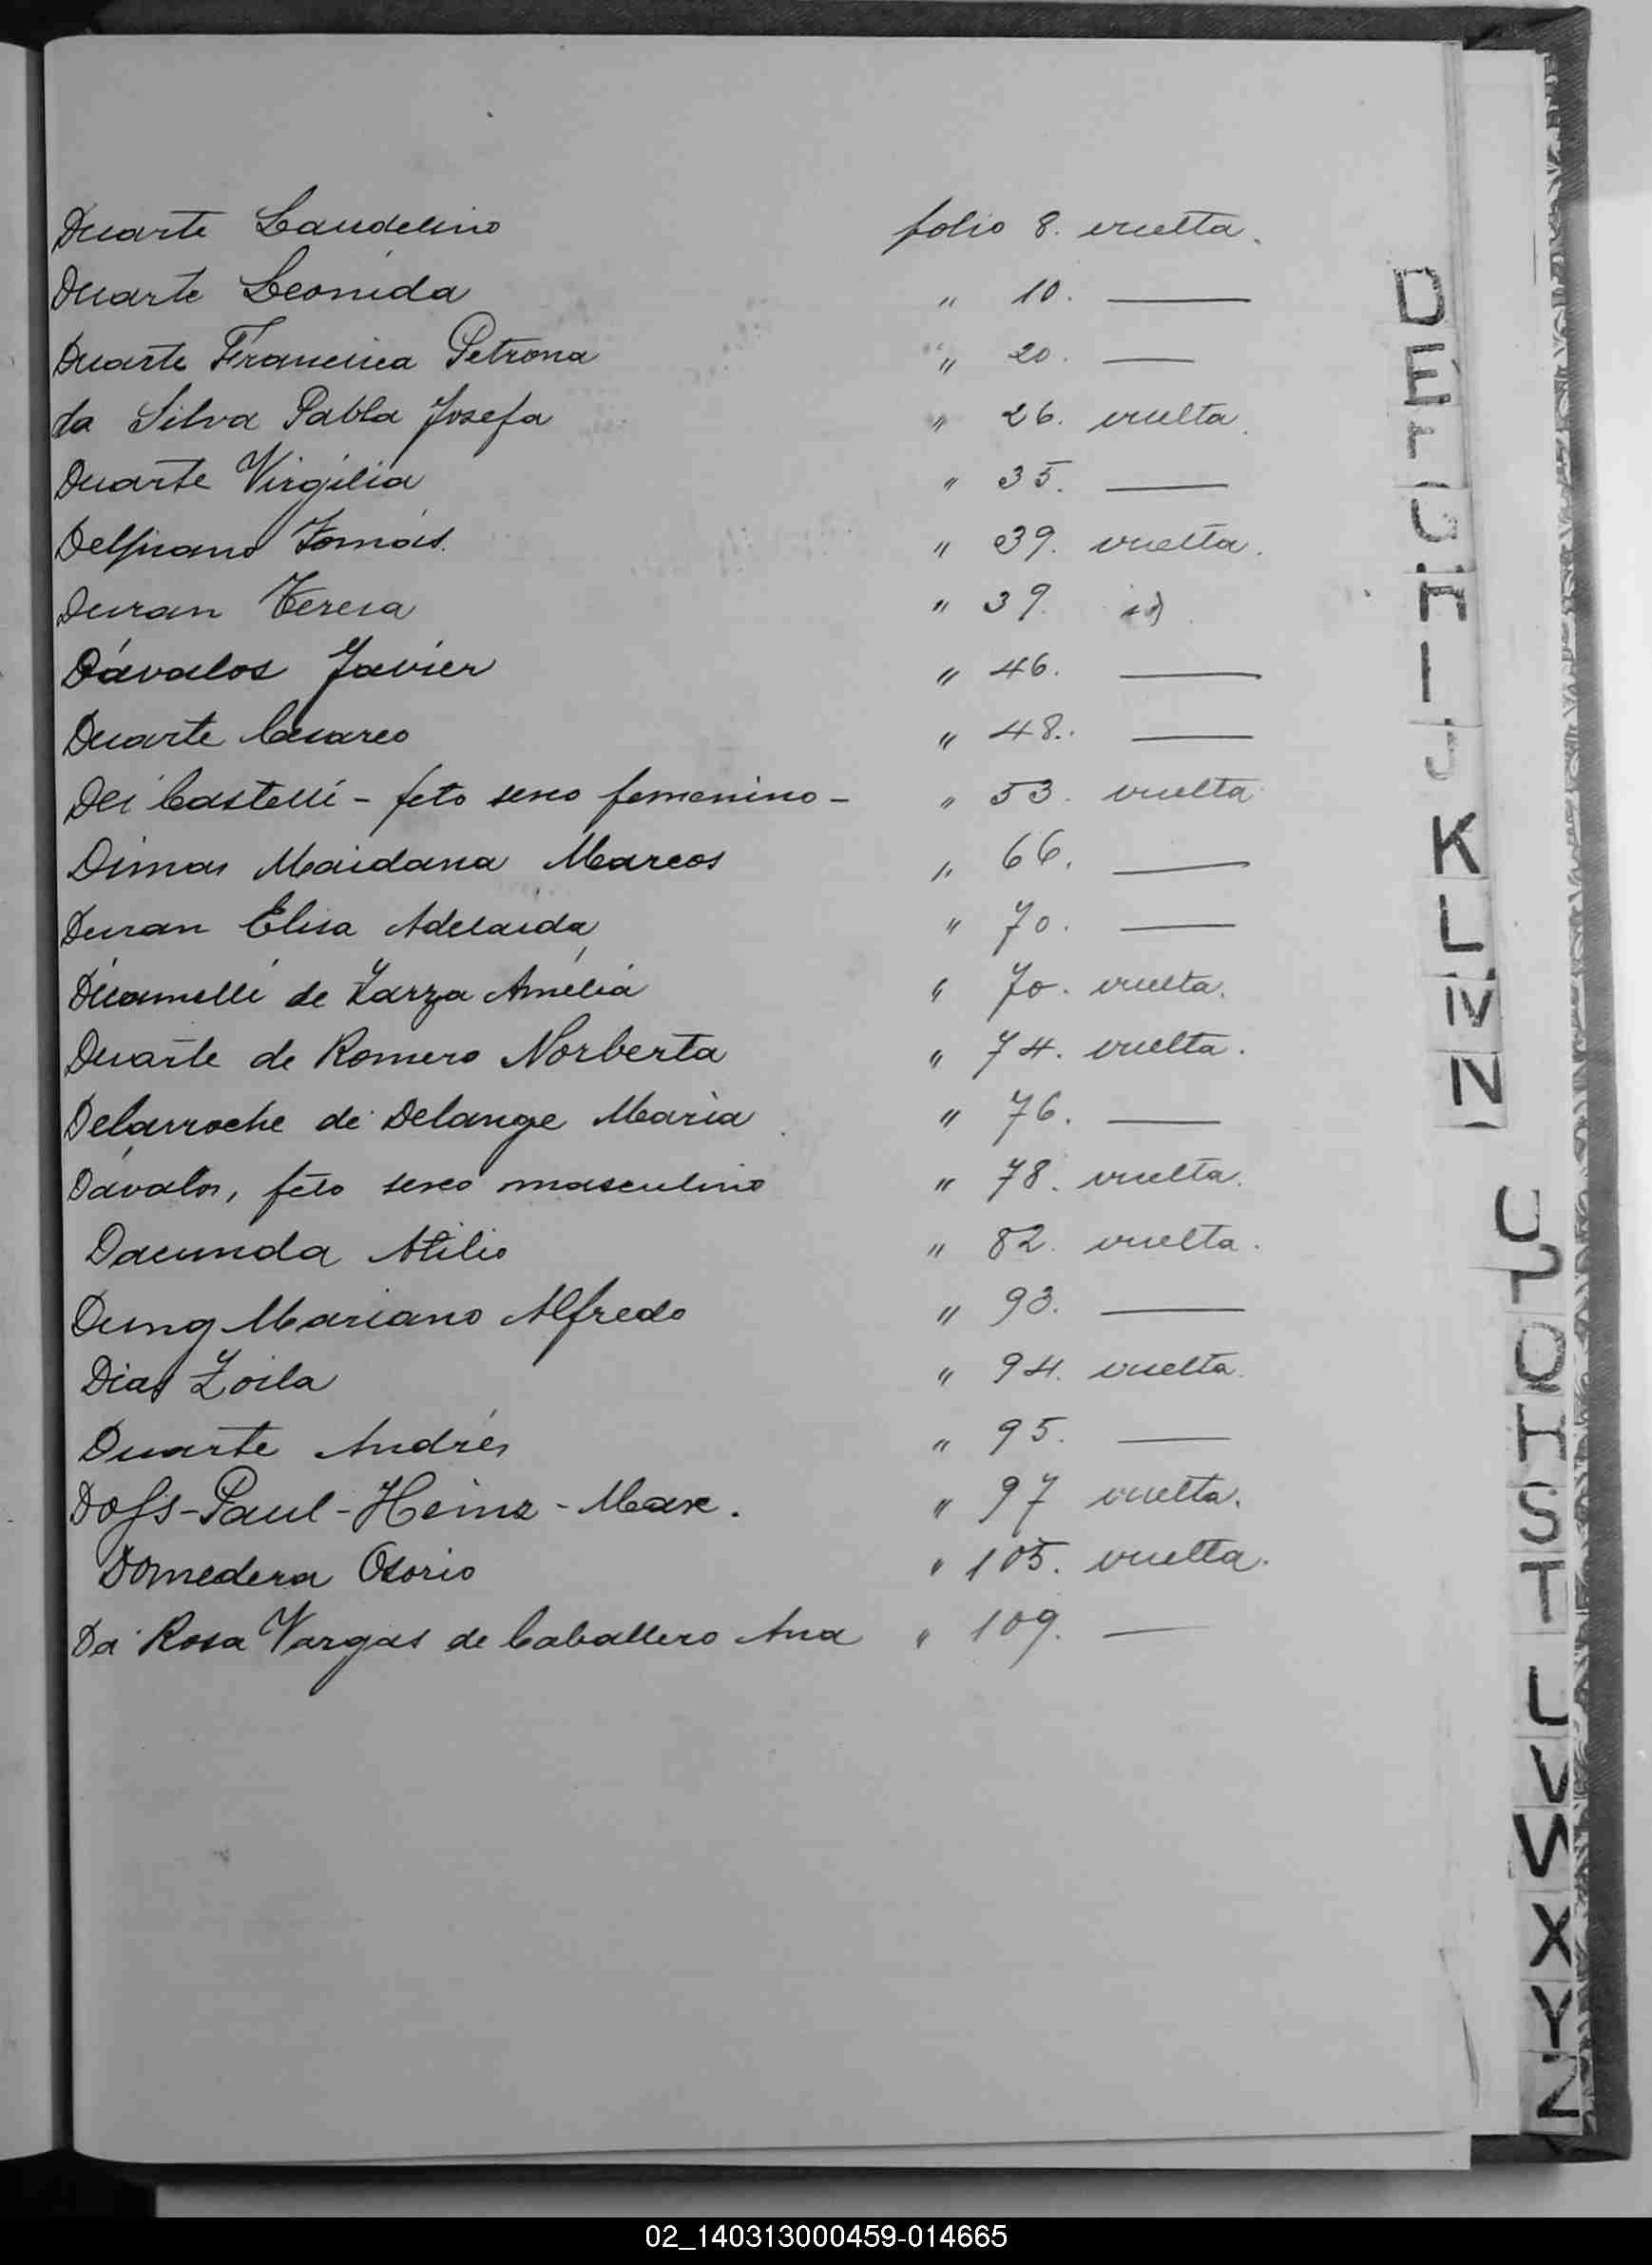 Duarte Laudelino folio 8. vuelta.
Duarte Leonida " 10. ——
Duarte Francisca Petrona " 20. —
da Silva Pabla Josefa " 26. vuelta.
Duarte Virgilia " 35. ——
Delfinano Tomás. " 39. vuelta.
Duran Teresa " 39. id
Dávalos Javier " 46. ——
Duarte Cesareo " 48. ——
Dei Castelli - feto sexo femenino - " 53. vuelta
Dimas Maidana Marcos " 66. ——
Duran Elisa Adelaida " 70. ——
de Zarza Amelia " 70. vuelta.
Duarte de Romero Norberta " 74. vuelta.
Delarroche de Delange Maria " 76. ——
Dávalos, feto sexo masculino " 78. vuelta.
Dacunda Atilio " 82. vuelta.
Dung Mariano Alfredo " 93. ——
Dias Zoila " 94. vuelta.
Duarte Andrés " 95. ——
Doss-Paul-Heinz-Max. " 97 vuelta.
Domedera Osorio " 105. vuelta.
Da Rosa Vargas de Caballero Ana " 109. —
D
E
I
J
K
L
M
N
S
T
V
W
X
Y
Z
02_140313000459-014665